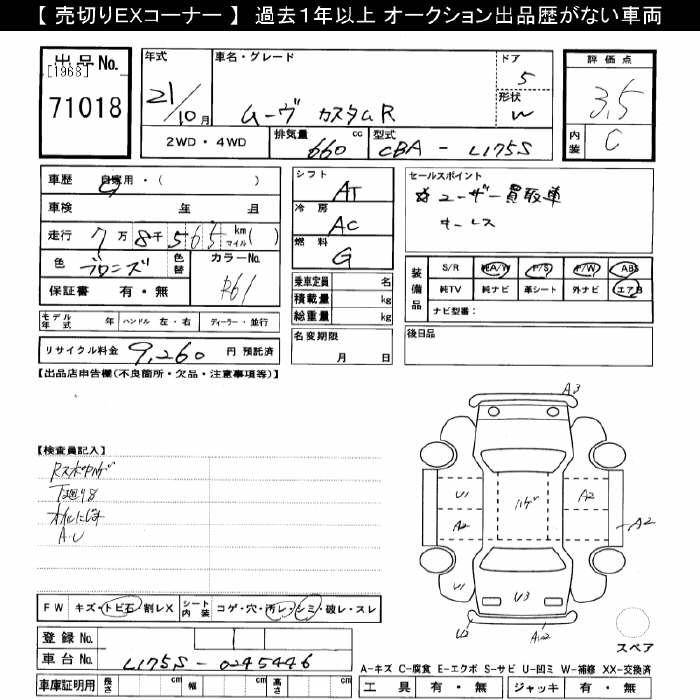 【 売切りEXコーナー 】 過去１年以上 オークション出品歴がない車両
出品No.
[1968]
71018
年式
21/10月
車名・グレード
ムーヴ カスタムR
ドア
5
形状
W
評価点
3.5
内装
C
2WD・4WD
排気量
660 cc
型式
CBA - L175S
車歴 自家用・( )
車検 年 月
走行 7万8千565 km マイル( )
色 ブロンズ
色替
カラーNo.
R61
保証書 有・無
シフト
AT
冷房
AC
燃料
G
乗車定員 名
積載量 kg
総重量 kg
名変期限
月 日
セールスポイント
ユーザー買取車
オーレス
装備品
S/R 純A/W P/S P/W ABS
純TV 純ナビ 革シート 外ナビ エアB
ナビ型番：
後日品
モデル年式 年 ハンドル 左・右 ディーラー・並行
リサイクル料金 9,260 円 預託済
【出品店申告欄(不良箇所・欠品・注意事項等)】
【検査員記入】
下廻サビ
オイルにじみ
A・U
A3
U1
A2
ハゲ
A2
A2
U1
U3
U2
FW キズ・トビ石・割レX
シート内装 コゲ・穴・汚レ・シミ・破レ・スレ
登録No.
車台No. L175S - 0245446
車庫証明用 長さ cm 幅 cm 高さ cm
スペア
A-キズ C-腐食 E-エクボ S-サビ U-凹ミ W-補修 XX-交換済
工具 有・無 ジャッキ 有・無